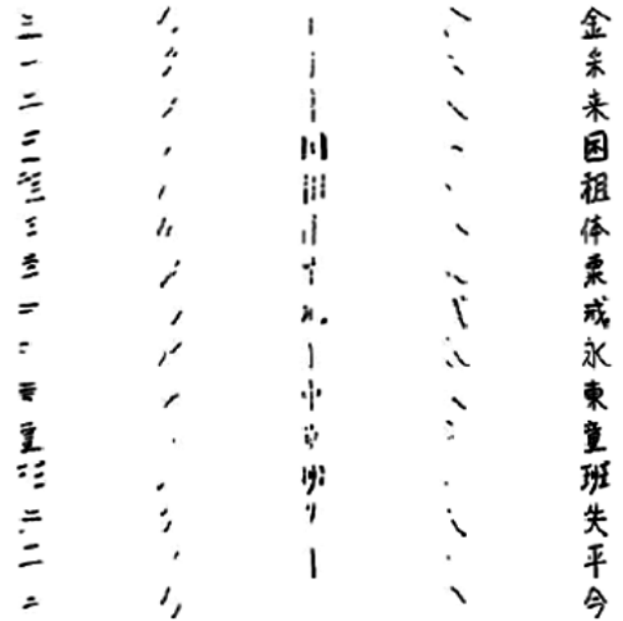 金
米
来
困
租
体
粟
戒
永
東
童
班
失
平
今